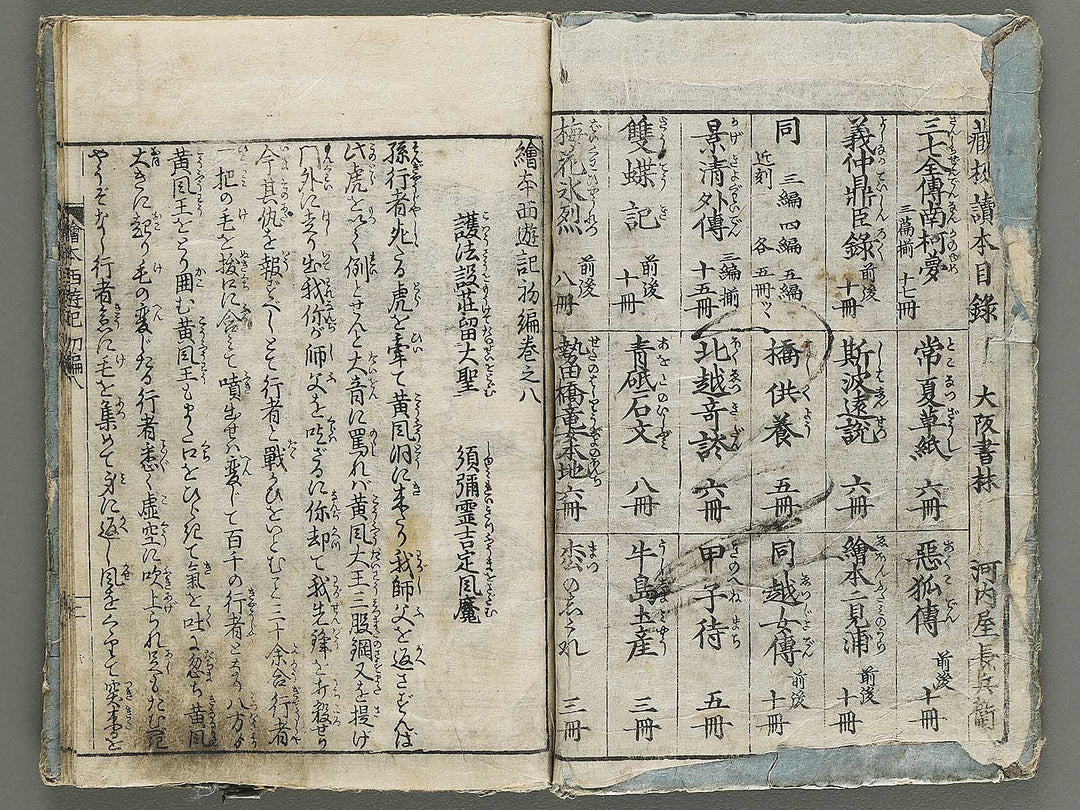 藏板讀本目錄 大阪書林 河内屋長兵衛
三七全傳南柯夢 三篇揃 十七冊
常夏草紙 六冊
惡狐傳 前後 十冊
義仲鼎臣錄 前後 十冊
斯波遠説 六冊
繪本二見浦 前後 十冊
同 三編四編五編 近刻 各五冊ツヽ
橋供養 五冊
同越女傳 前後 十冊
景清外傳 三編揃 十五冊
北越奇談 六冊
甲子待 五冊
雙蝶記 前後 十冊
青砥石文 八冊
牛島土産 三冊
梅花氷烈 前後 八冊
勢田橋竜女本地 六冊
三冊
繪本西遊記初編巻之八
護法設莊留大聖 須彌靈吉定風魔
孫行者死たる虎を牽て黄風洞に来り我師父を返さずんば
此虎を以て例とせんと大音に罵れバ黄風大王三股鋼叉を提げ
門外に走り出我你が師父を吃ざるに你却て我先鋒を打殺せり
今其仇を報ずべしとて行者と戦かひをいどむこと三十余合行者
一把の毛を抜口に含て噴出せバ変じて百千の行者となり八方より
黄風王をとり囲む黄風王もまた口をひらきて氣を吐よ忽ち黄風
大きに起り毛の変じたる行者悉く虚空に吹上られ足もたむる
やうぞなし行者急に毛を集めて身に返し風をくゞりて突来を
繪本西遊記初編八